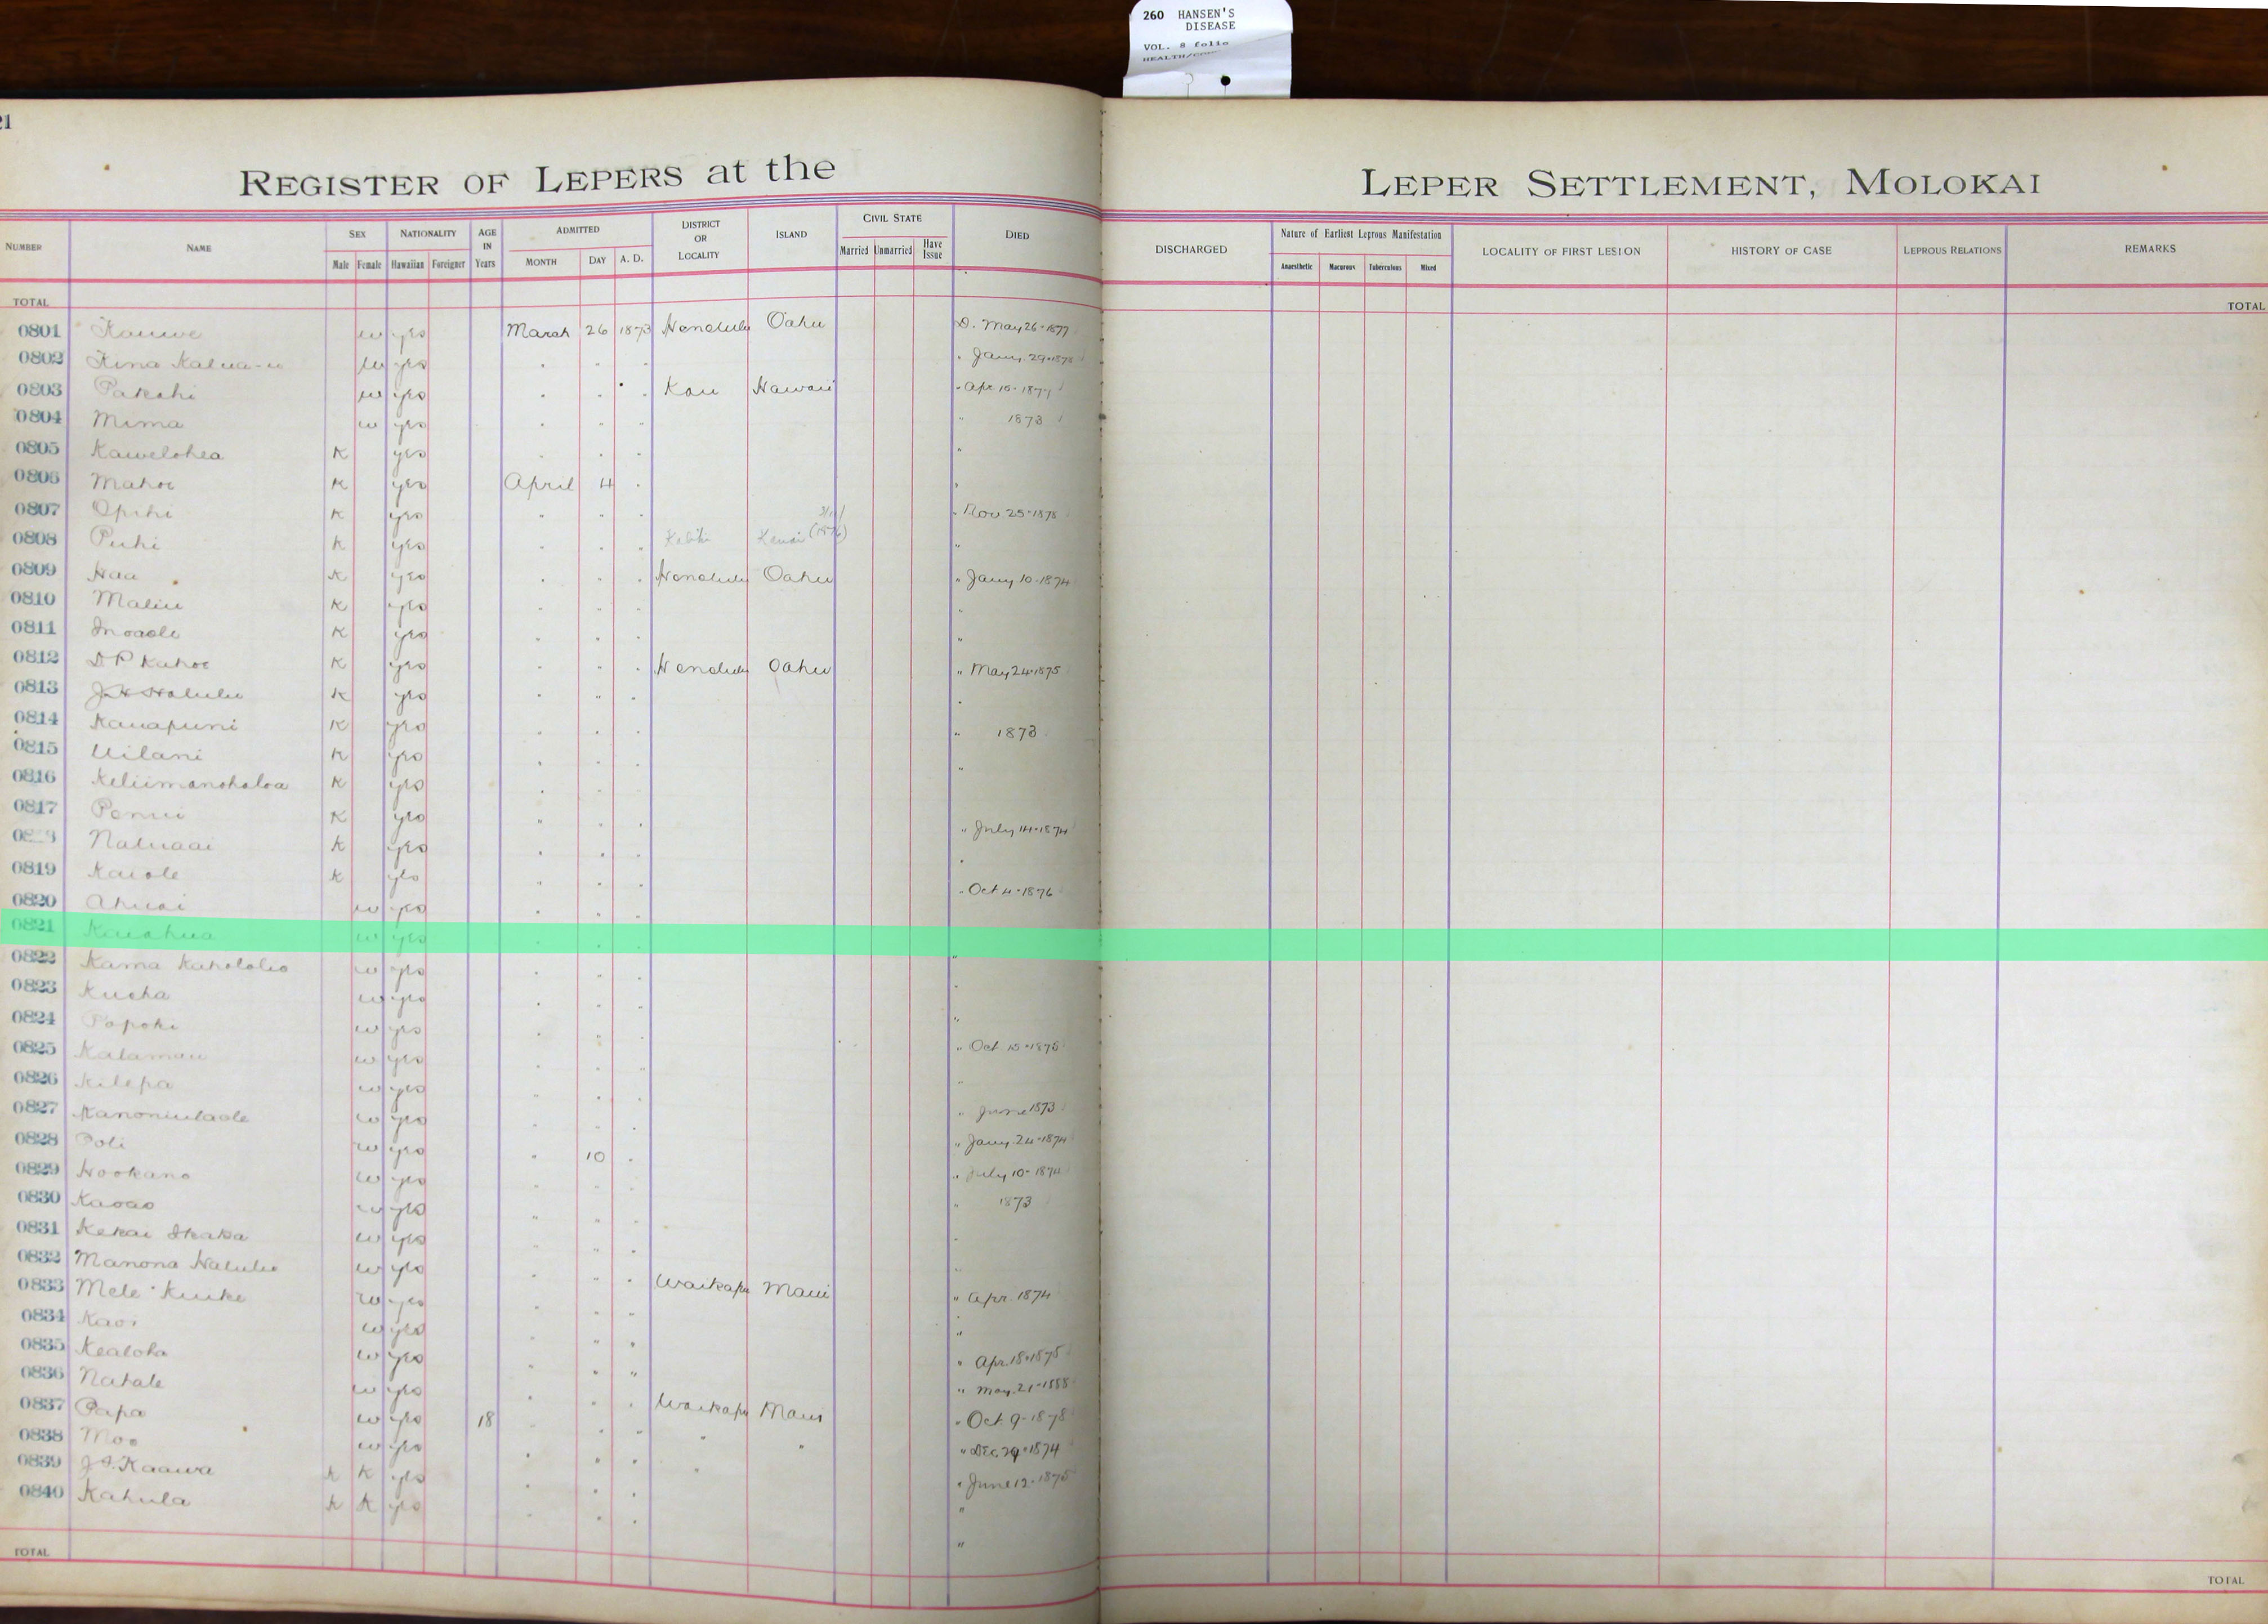 260 HANSEN'S
DISEASE
VOL. 8 folio
21
REGISTER OF LEPERS at the LEPER SETTLEMENT, MOLOKAI
NUMBER NAME SEX Male Female NATIONALITY Hawaiian Foreigner AGE IN Years ADMITTED MONTH DAY A. D. DISTRICT OR LOCALITY ISLAND CIVIL STATE Married Unmarried Have Issue DIED DISCHARGED Nature of Earliest Leprous Manifestation Anaesthetic Macurous Tuberculous Mixed LOCALITY OF FIRST LESION HISTORY OF CASE LEPROUS RELATIONS REMARKS
TOTAL TOTAL
0801 Kauwe w yes March 26 1873 Honolulu Oahu D. May 26-1877
0802 Kina Kalua-u w yes " " " " Jany. 29-1878
0803 Pakahi w yes " " " Kau Hawaii " Apr 15-1877
0804 Mima w yes " " " " 1873
0805 Kawelohea K yes " " " "
0806 Mahoe K yes April 4 " "
0807 Opihi K yes " " " " Nov 25-1878
0808 Puhi K yes " " " Kauai (1876) "
0809 Haa K yes " " " Honolulu Oahu " Jany 10-1874
0810 Maliu K yes " " " "
0811 Inoaole K yes " " " "
0812 D P Kahoe K yes " " " Honolulu Oahu " May 24-1875
0813 J. H Halulu K yes " " " "
0814 Kauapuni K yes " " " " 1873
0815 Uilani K yes " " " "
0816 Keliimanoholoa K yes " " "
0817 Penui K yes " " " " July 14-1874
Naluaai K yes " " " "
0819 Kaiole K yes " " " " Oct 4-1876
0820 Ahuai w yes " " "
0821 Kaiahua w yes " " " "
0822 Kama Kahololio w yes " " " "
0823 Kueha w yes " " " "
0824 Papoki w yes " " " " Oct 15-1875
0825 Kalamau w yes " " " "
0826 Kilepa w yes " " " " June 1873
0827 Kanoniulaole w yes " " " " Jany. 24-1874
0828 Poli w yes " 10 " " July 10-1874
0829 Hookano w yes " " " " 1873
0830 Kaoao w yes " " " "
0831 Kekai Ikaka w yes " " " "
0832 Manona Halulu w yes " " " Waikapu Maui " Apr. 1874
0833 Mele Kuike w yes " " " "
0834 Kaoi w yes " " " " Apr. 18-1875
0835 Kealoha w yes " " " " May. 21-1888
0836 Nahale w yes " " " Waikapu Maui " Oct 9-1878
0837 Papa w yes 18 " " " " " " Dec. 29-1874
0838 Moo w yes " " " " " June 12-1875
0839 J. I. Kaawa K K yes " " " "
0840 Kahula K K yes " " " "
TOTAL TOTAL